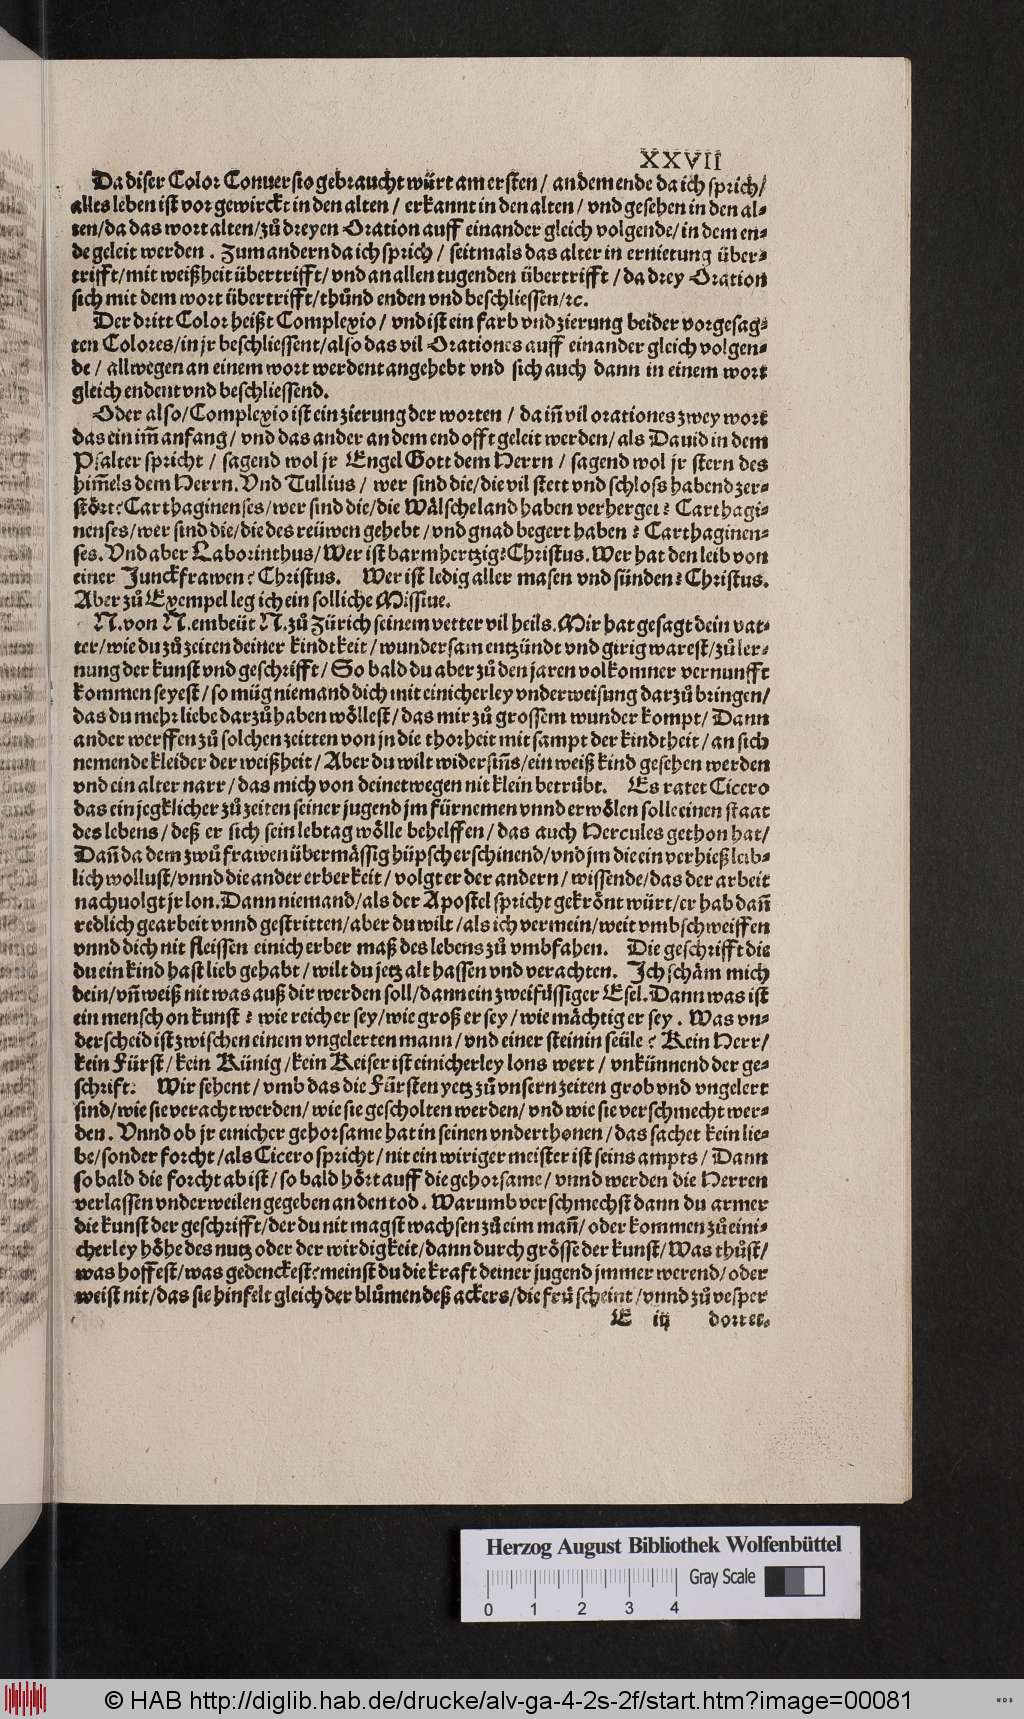 XXVII
Da diser Color Conuersio gebraucht würt am ersten / an dem ende da ich sprich/
alles leben ist vor gewirckt in den alten / erkannt in den alten / vnd gesehen in den al⸗
ten/da das wort alten/zuͦ dreyen Oration auff einander gleich volgende/in dem en⸗
de geleit werden . Zum andern da ich sprich / seitmals das alter in ernietung über⸗
trifft/mit weißheit übertrifft/vnd an allen tugenden übertrifft / da drey Oration
sich mit dem wort übertrifft/thuͦnd enden vnd beschliessen/ꝛc.
Der dritt Color heißt Complexio / vnd ist ein farb vnd zierung beider vorgesag⸗
ten Colores/in jr beschliessent/also das vil Orationes auff einander gleich volgen⸗
de / allwegen an einem wort werdent angehebt vnd sich auch dann in einem wort
gleich endent vnd beschliessend.
Oder also/Complexio ist ein zierung der worten / da in̄ vil orationes zwey wort
das ein im̄ anfang/ vnd das ander an dem end offt geleit werden/als Dauid in dem
Psalter spricht / sagend wol jr Engel Gott dem Herrn / sagend wol jr stern des
him̄els dem Herrn. Vnd Tullius / wer sind die/die vil stett vnd schloss habend zer⸗
stört? Carthaginenses/wer sind die/die Wälscheland haben verherget? Carthagi⸗
nenses/wer sind die/die des reüwen gehebt/vnd gnad begert haben? Carthaginen⸗
ses. Vnd aber Laborinthus/Wer ist barmhertzig? Christus. Wer hat den leib von
einer Junckfrawen? Christus. Wer ist ledig aller masen vnd sünden? Christus.
Aber zuͦ Exempel leg ich ein solliche Missiue.
N. von N. embeüt N. zuͦ Zürich seinem vetter vil heils. Mir hat gesagt dein vat⸗
ter/wie du zuͦ zeiten deiner kindtkeit/wundersam entzündt vnd girig warest/zuͦ ler⸗
nung der kunst vnd geschrifft/ So bald du aber zuͦ den jaren volkomner vernunfft
kommen seyest/so müg niemand dich mit einicherley vnderweisung darzuͦ bringen/
das du mehr liebe darzuͦ haben wöllest/das mir zuͦ grossem wunder kompt/ Dann
ander werffen zuͦ solchen zeitten von jn die thorheit mit sampt der kindtheit/an sich
nemende kleider der weißheit/Aber du wilt widersin̄s/ein weiß kind gesehen werden
vnd ein alter narr/das mich von deinetwegen nit klein betrübt. Es ratet Cicero
das ein jegklicher zuͦ zeiten seiner jugend jm fürnemen vnnd erwölen solle einen staat
des lebens/deß er sich sein lebtag wölle behelffen/das auch Hercules gethon hat/
Dan̄ da dem zwuͦ frawen übermässig hüpsch erschinend/vnd jm die ein verhieß leib⸗
lich wollust/vnnd die ander erberkeit/ volgt er der andern/wissende/das der arbeit
nachuolgt jr lon. Dann niemand/als der Apostel spricht gekrönt würt/er hab dan̄
redlich gearbeit vnnd gestritten/aber du wilt/als ich vermein/weit vmbschweiffen
vnnd dich nit fleissen einich erber maß des lebens zuͦ vmbfahen. Die geschrifft die
du ein kind hast lieb gehabt/wilt du jetz alt hassen vnd verachten. Ich schäm mich
dein/vn̄ weiß nit was auß dir werden soll/dann ein zweifüssiger Esel. Dann was ist
ein mensch on kunst? wie reich er sey/wie groß er sey/wie mächtig er sey. Was vn⸗
derscheid ist zwischen einem vngelerten mann/vnd einer steinin seüle? Kein Herr/
kein Fürst/kein Künig/kein Keiser ist einicherley lons wert/vnkünnend der ge⸗
schrift. Wir sehent/vmb das die Fürsten yetz zuͦ vnsern zeiten grob vnd vngelert
sind/wie sie veracht werden/wie sie gescholten werden/vnd wie sie verschmecht wer⸗
den. Vnnd ob jr einicher gehorsame hat in seinen vnderthonen/das sachet kein lie⸗
be/sonder forcht/als Cicero spricht/nit ein wiriger meister ist seins ampts/ Dann
so bald die forcht ab ist/so bald hört auff die gehorsame/vnnd werden die Herren
verlassen vnderweilen gegeben an den tod. Warumb verschmechst dann du armer
die kunst der geschrifft/der du nit magst wachsen zuͦ eim man̄/oder kommen zuͦ eini⸗
cherley höhe des nutz oder der wirdigkeit/dann durch grösse der kunst/Was thuͦst/
was hoffest/was gedenckest? meinst du die kraft deiner jugend jmmer werend/oder
weist nit/das sie hinfelt gleich der bluͦmen deß ackers/die fruͦ scheint/vnnd zuͦ vesper
E iij dorret.
Herzog August Bibliothek Wolfenbüttel
Gray Scale
0 1 2 3 4
© HAB http://diglib.hab.de/drucke/alv-ga-4-2s-2f/start.htm?image=00081